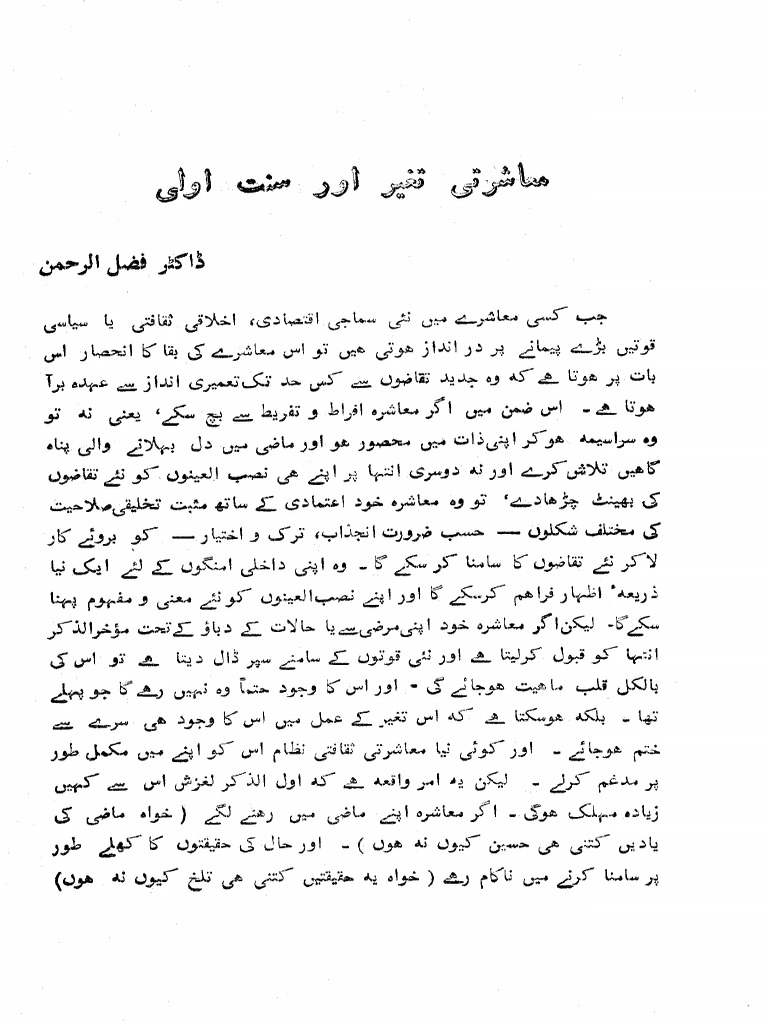 معاشرتی تغیر اور سنت اولی
ڈاکٹر فضل الرحمن
جب کسی معاشرے میں نئی سماجی اقتصادی، اخلاقی ثقافتی یا سیاسی
قوتیں بڑے پیمانے پر در انداز ہوتی ہیں تو اس معاشرے کی بقا کا انحصار اس
بات پر ہوتا ہے کہ وہ جدید تقاضوں سے کس حد تک تعمیری انداز سے عہدہ برآ
ہوتا ہے۔ اس ضمن میں اگر معاشرہ افراط و تفریط سے بچ سکے، یعنی نہ تو
وہ سراسیمہ ہوکر اپنی ذات میں محصور ہو اور ماضی میں دل بہلانے والی پناہ
گاہیں تلاش کرے اور نہ دوسری انتہا پر اپنے ہی نصب العینوں کو نئے تقاضوں
کی بھینٹ چڑھادے، تو وہ معاشرہ خود اعتمادی کے ساتھ مثبت تخلیقی صلاحیت
کی مختلف شکلوں — حسب ضرورت انجذاب، ترک و اختیار — کو بروئے کار
لاکر نئے تقاضوں کا سامنا کر سکے گا۔ وہ اپنی داخلی امنگوں کے لئے ایک نیا
ذریعہٴ اظہار فراہم کرسکے گا اور اپنے نصب العینوں کو نئے معنی و مفہوم پہنا
سکے گا۔ لیکن اگر معاشرہ خود اپنی مرضی سے یا حالات کے دباؤ کے تحت مؤخرالذکر
انتہا کو قبول کرلیتا ہے اور نئی قوتوں کے سامنے سپر ڈال دیتا ہے تو اس کی
بالکل قلب ماہیت ہوجائے گی۔ اور اس کا وجود حتماً وہ نہیں رہے گا جو پہلے
تھا۔ بلکہ ہوسکتا ہے کہ اس تغیر کے عمل میں اس کا وجود ہی سرے سے
ختم ہوجائے۔ اور کوئی نیا معاشرتی ثقافتی نظام اس کو اپنے میں مکمل طور
پر مدغم کرلے۔ لیکن یہ امر واقعہ ہے کہ اول الذکر لغزش اس سے کہیں
زیادہ مہلک ہوگی۔ اگر معاشرہ اپنے ماضی میں رہنے لگے (خواہ ماضی کی
یادیں کتنی ہی حسین کیوں نہ ہوں)۔ اور حال کی حقیقتوں کا کھلے طور
پر سامنا کرنے میں ناکام رہے (خواہ یہ حقیقتیں کتنی ہی تلخ کیوں نہ ہوں)